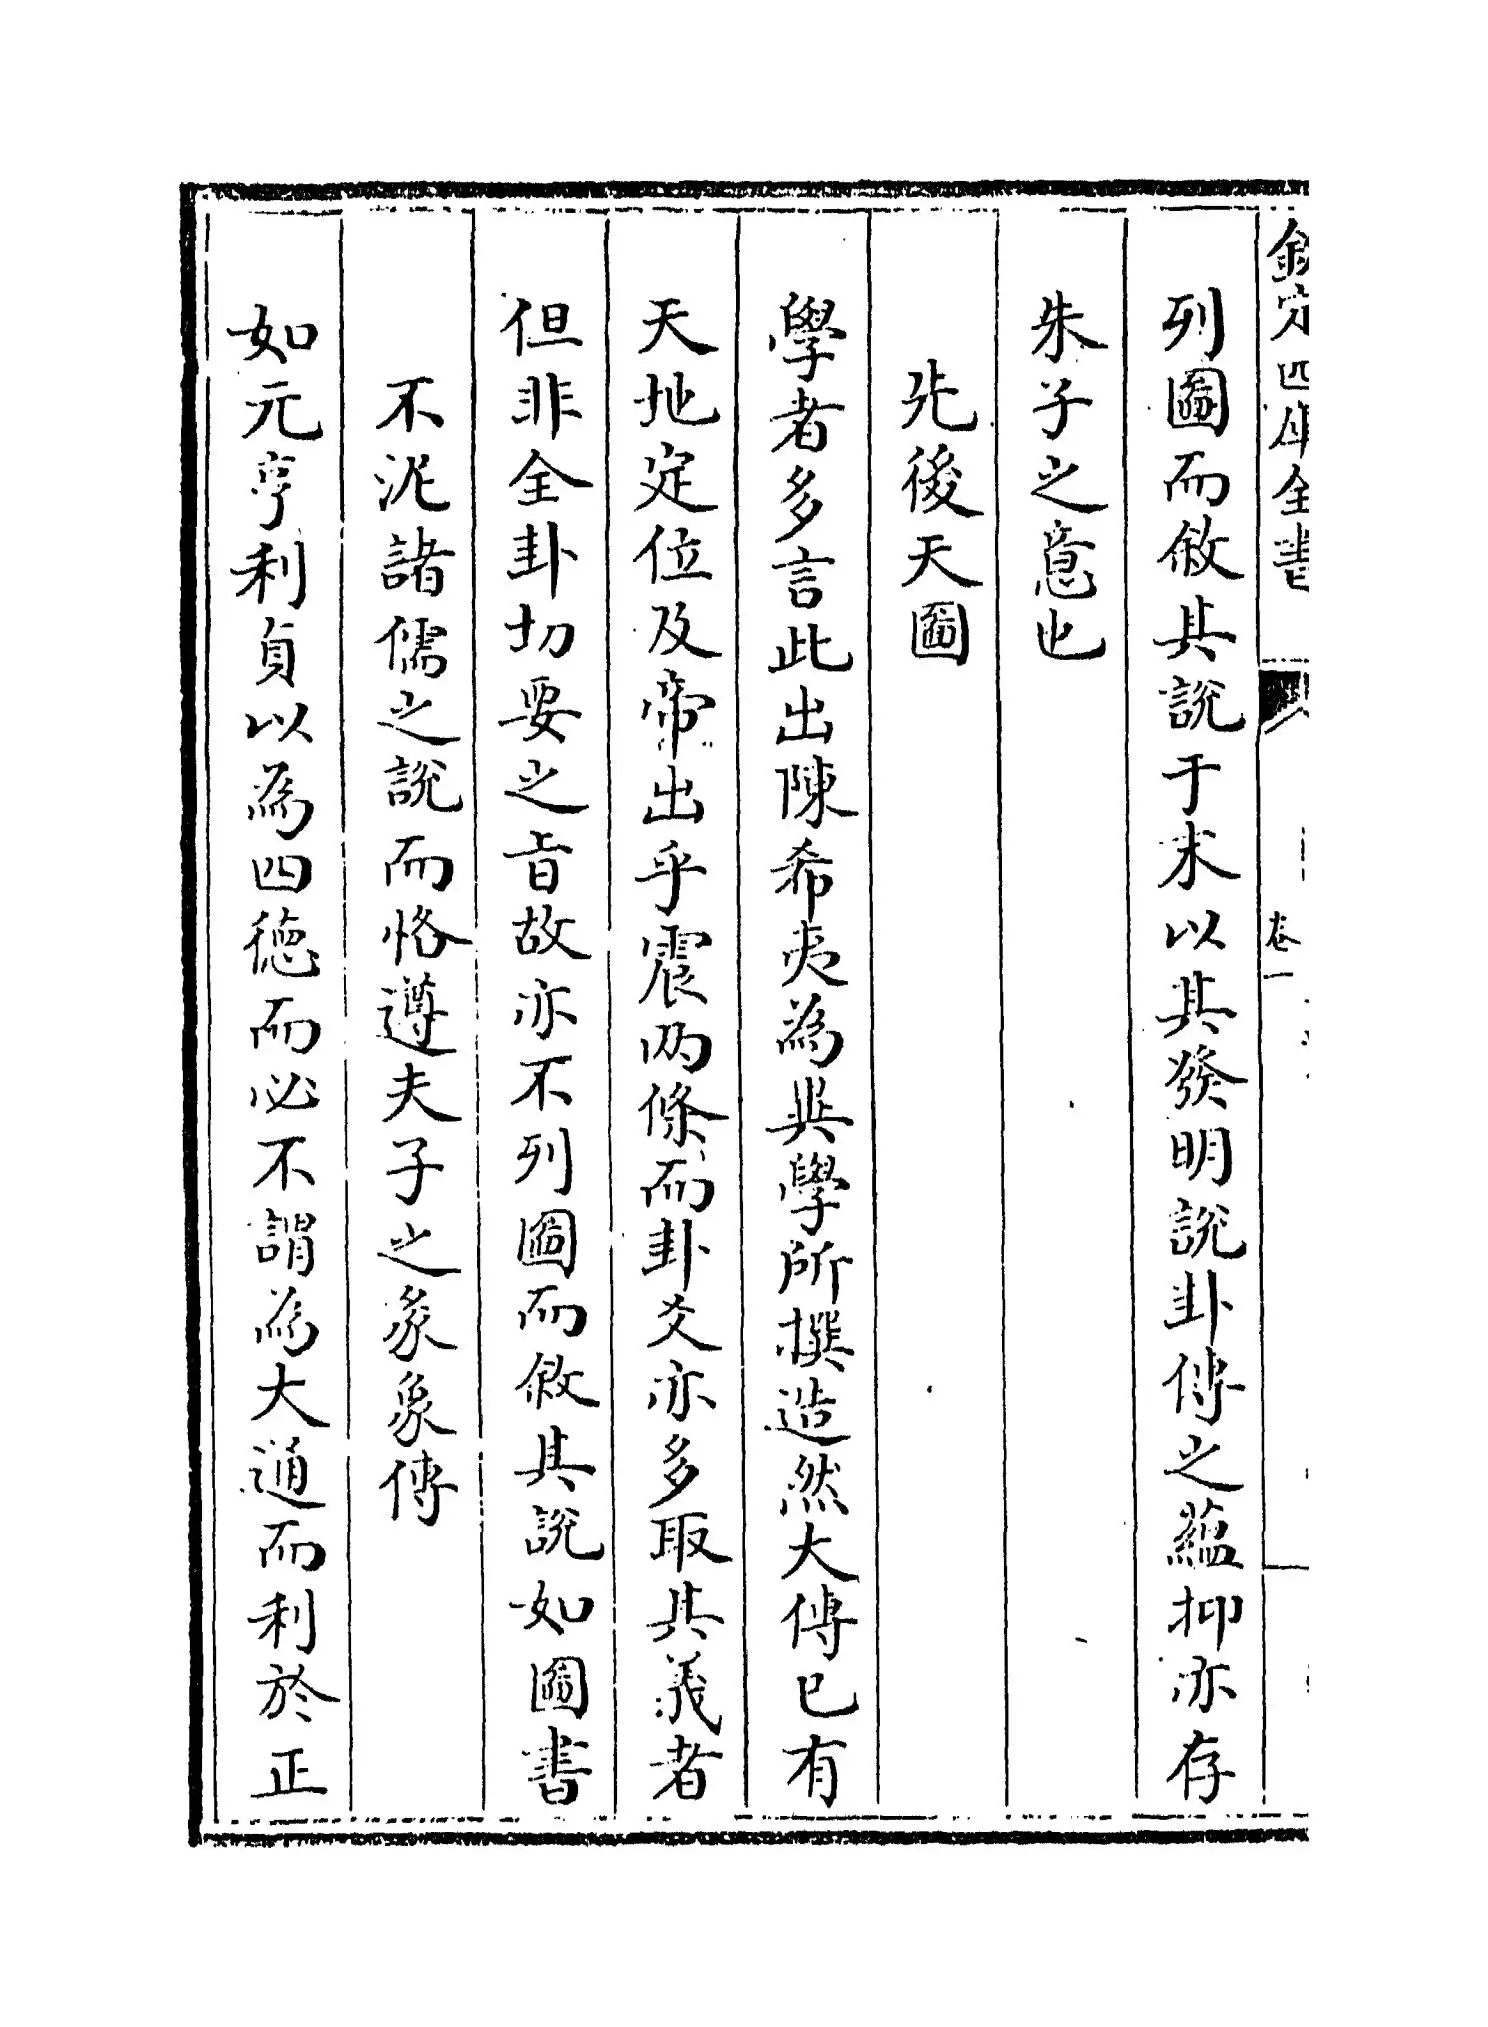 欽定四庫全書
卷一
列圖而敘其說于末以其發明說卦傳之蘊抑亦存
朱子之意也
先後天圖
學者多言此出陳希夷為異學所撰造然大傳已有
天地定位及帝出乎震两條而卦爻亦多取其義者
但非全卦切要之旨故亦不列圖而敘其說如圖書
不泥諸儒之說而恪遵夫子之彖象傳
如元亨利貞以為四德而必不謂為大通而利於正